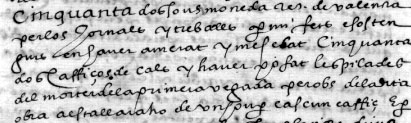 Cinquanta dos sous moneda real de valencia
per los Jornals y treballs per mi fets e sosten
guts en haver amerat y mesclat Cinquanta
dos caffiços de cals y haver posat les pilades
del morter de la primera vegada per obs de la dita
obra a estall a raho de un sou per cascun caffiç E